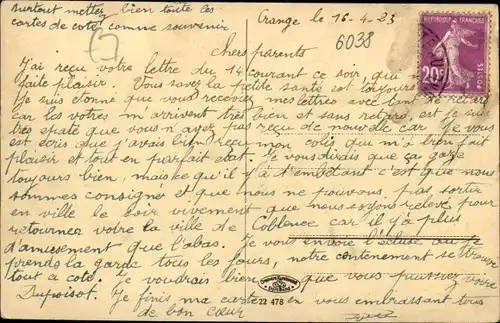 surtout mettez bien toute ces
cartes de coté comme souvenir
Orange le 16-4-23
6038
RÉPUBLIQUE FRANÇAISE
20c
POSTES
chers parents
J'ai reçu votre lettre du 14 courant ce soir, qui
faite plaisir. Vous savez la petite santé est toujours
Je suis étonné que vous recevez mes lettres avec tant de retard
car les votres m'arrivent très bien et sans retard, et je suis
très épaté que vous n'ayez pas reçu de nouvelle car je vous
est écris que j'avais bien reçu mon colis, qui m'a bien fait
plaisir et tout en parfait état. Je vous dirais que ça gaze
toujours bien, mais ke qu'il y a d'embêtant c'est que nous
sommes consigné et que nous ne pouvons pas sortir
en ville le soir vivement que nous soyons relevé pour
retourner votre la ville de Coblence car il y a plus
d'amusement que labas. Je vous envoie l'écluse ou je
prends la garde tous les jours, notre contenement se trouve
tout a coté. Je voudrais bien que vous
Dupoisot. Je finis ma carte en vous embrassant tous
de bon cœur
22 478